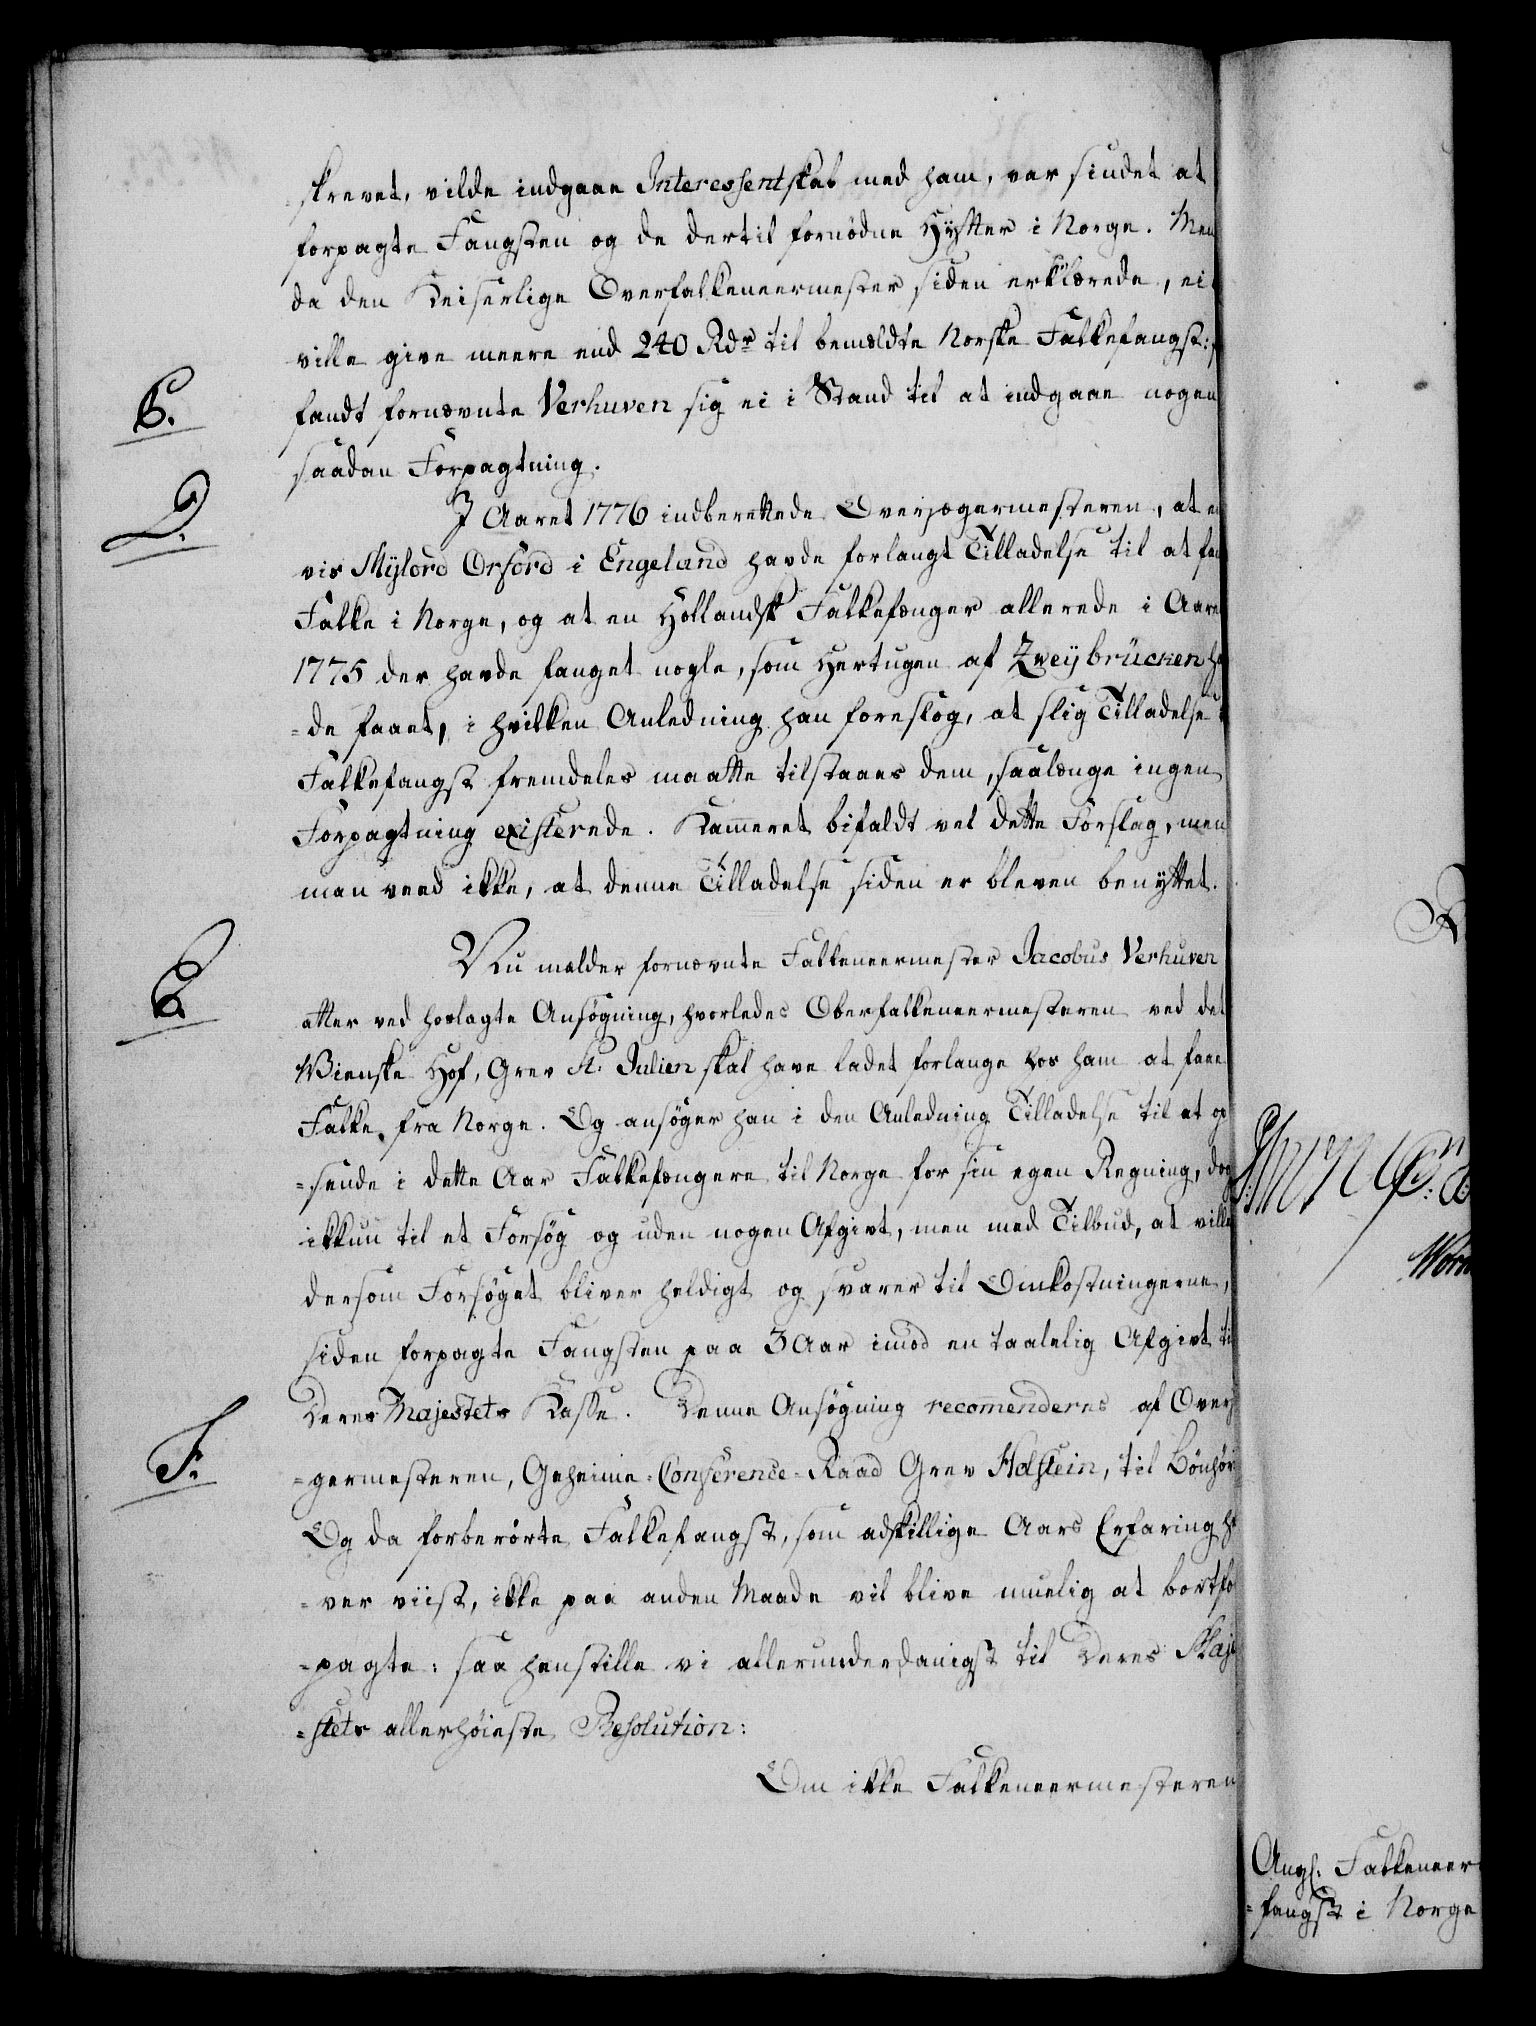 skrevet, vilde indgaae Interessentskab med ham, var sindet at
forpagte Fangsten og de dertil fornødne Hytter i Norge. Men
da den Keiserlige Overfalkeneermester siden erklærede, ei
ville give meere end 240 Rdr til bemeldte Norske Falkefangst:
C.
fandt fornævnte Verhuven sig ei i Stand til at indgaae nogen
saadan Forpagtning.
D.
I Aaret 1776 indberettede Overjægermesteren, at en
vis Mylord Orford i Engeland havde forlangt Tilladelse til at fan
Falke i Norge, og at en Hollandsk Falkefænger allerede i Aare
1775 der havde fanget nogle, som Hertugen af Zweybrücken ha
=de faaet, i hvilken Anledning han foreslog, at slig Tilladelse
Falkefangst fremdeles maatte tilstaaes dem, saalænge ingen
Forpagtning existerede. Kammeret bifaldt vel dette Forslag, men
man veed ikke, at denne Tilladelse siden er bleven benyttet.
E.
Nu melder fornævnte Falkeneermester Jacobus Verhuven
atter ved hoslagte Ansøgning, hvorledes Oberfalkeneermesteren ved det
Wienske Hof, Grev St. Julien skal have ladet forlange hos ham at faae
Falke fra Norge. Og ansøger han i den Anledning Tilladelse til at op
=sende i dette Aar Falkefængere til Norge for sin egen Regning, dog
ikkun til et Forsøg og uden nogen Afgivt, men med Tilbud, at ville
dersom Forsøget bliver heldigt og svarer til Omkostningerne,
siden forpagte Fangsten paa 3 Aar imod en taalelig Afgivt til
Deres Majestets Kasse. Denne Ansøgning recommenderes af Overjæ
F.
=germesteren, Geheime-Conference-Raad Grev Holstein, til Bønhør
Og da forberørte Falkefangst, som adskillige Aars Erfaring ha
=ver viist, ikke paa anden Maade vil blive muelig at bortfor
=pagte: saa henstille vi allerunderdanigst til Deres Maje
=stets allerhøieste Resolution:
Om ikke Falkeneermesteren
Angl. Falkeneer
=fangst i Norge